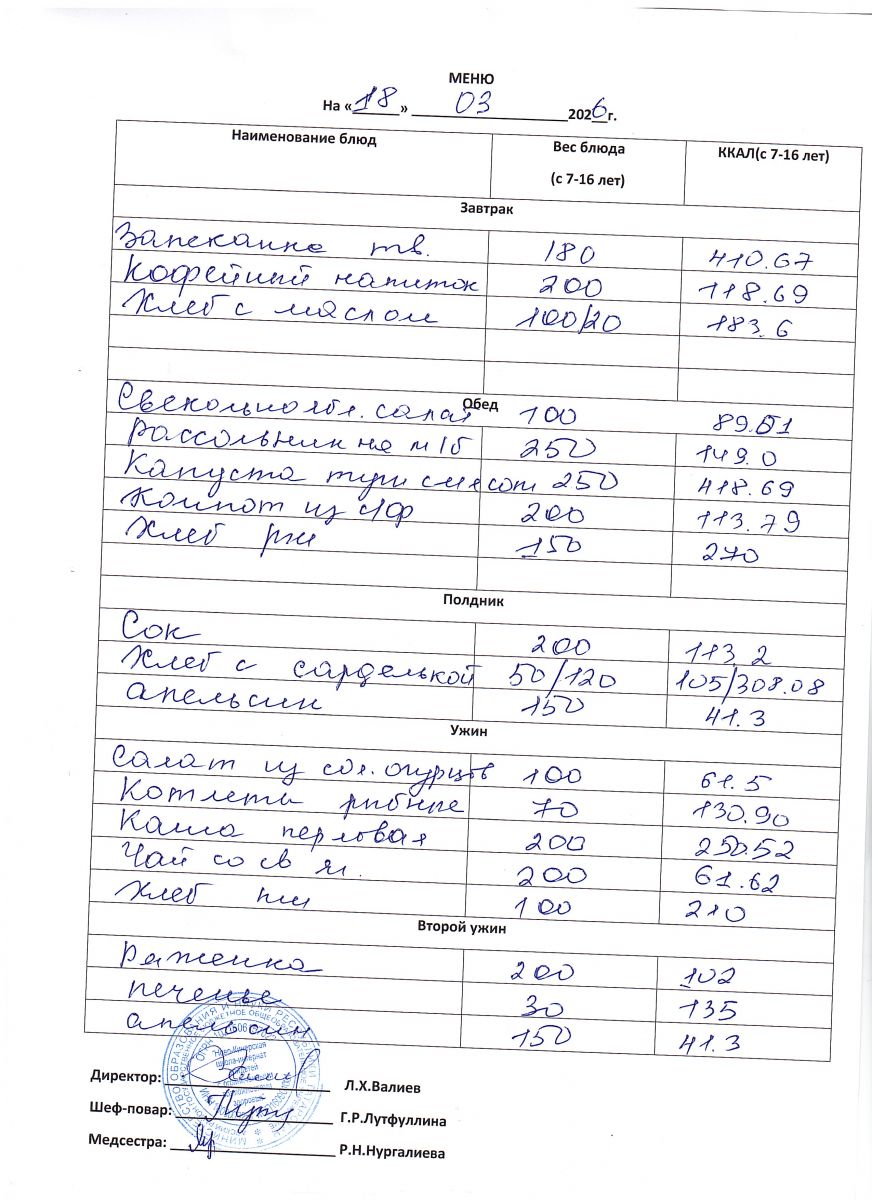 МЕНЮ
На «18» 03 2026г.
Наименование блюд Вес блюда (с 7-16 лет) ККАЛ(с 7-16 лет)
Завтрак
Запеканка тв. 180 410.67
Кофейный напиток 200 118.69
Хлеб с маслом 100/20 183.6
Обед
Свекольно ябл. салат 100 89.51
Рассольник на м/б 250 149.0
Капуста туш с мясом 250 418.69
Компот из с/ф 200 113.79
Хлеб рж 150 270
Полдник
Сок 200 113.2
Хлеб с сарделькой 50/120 105/308.08
апельсин 150 41.3
Ужин
Салат из сол. огурцов 100 61.5
Котлеты рыбные 70 130.90
Каша перловая 200 250.52
Чай со св яг. 200 61.62
Хлеб пш 100 210
Второй ужин
Ряженка 200 102
печенье 30 135
апельсин 150 41.3
Директор: Л.Х.Валиев
Шеф-повар: Г.Р.Лутфуллина
Медсестра: Р.Н.Нургалиева